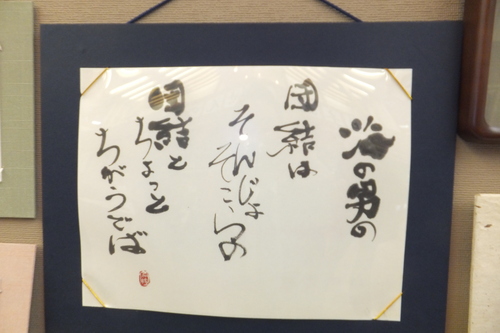 海の男の
団結は
そんじょ
そこいらの
団結と
ちょっと
ちがうてば